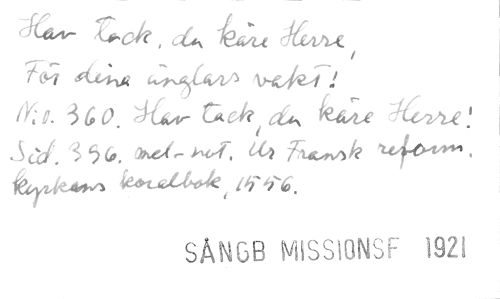 Hav tack, du käre Herre,
För dina änglars vakt!
N:o. 360. Hav tack, du käre Herre!
Sid. 396. mel-not. Ur Fransk reform.
kyrkans koralbok, 1556.
SÅNGB MISSIONSF 1921